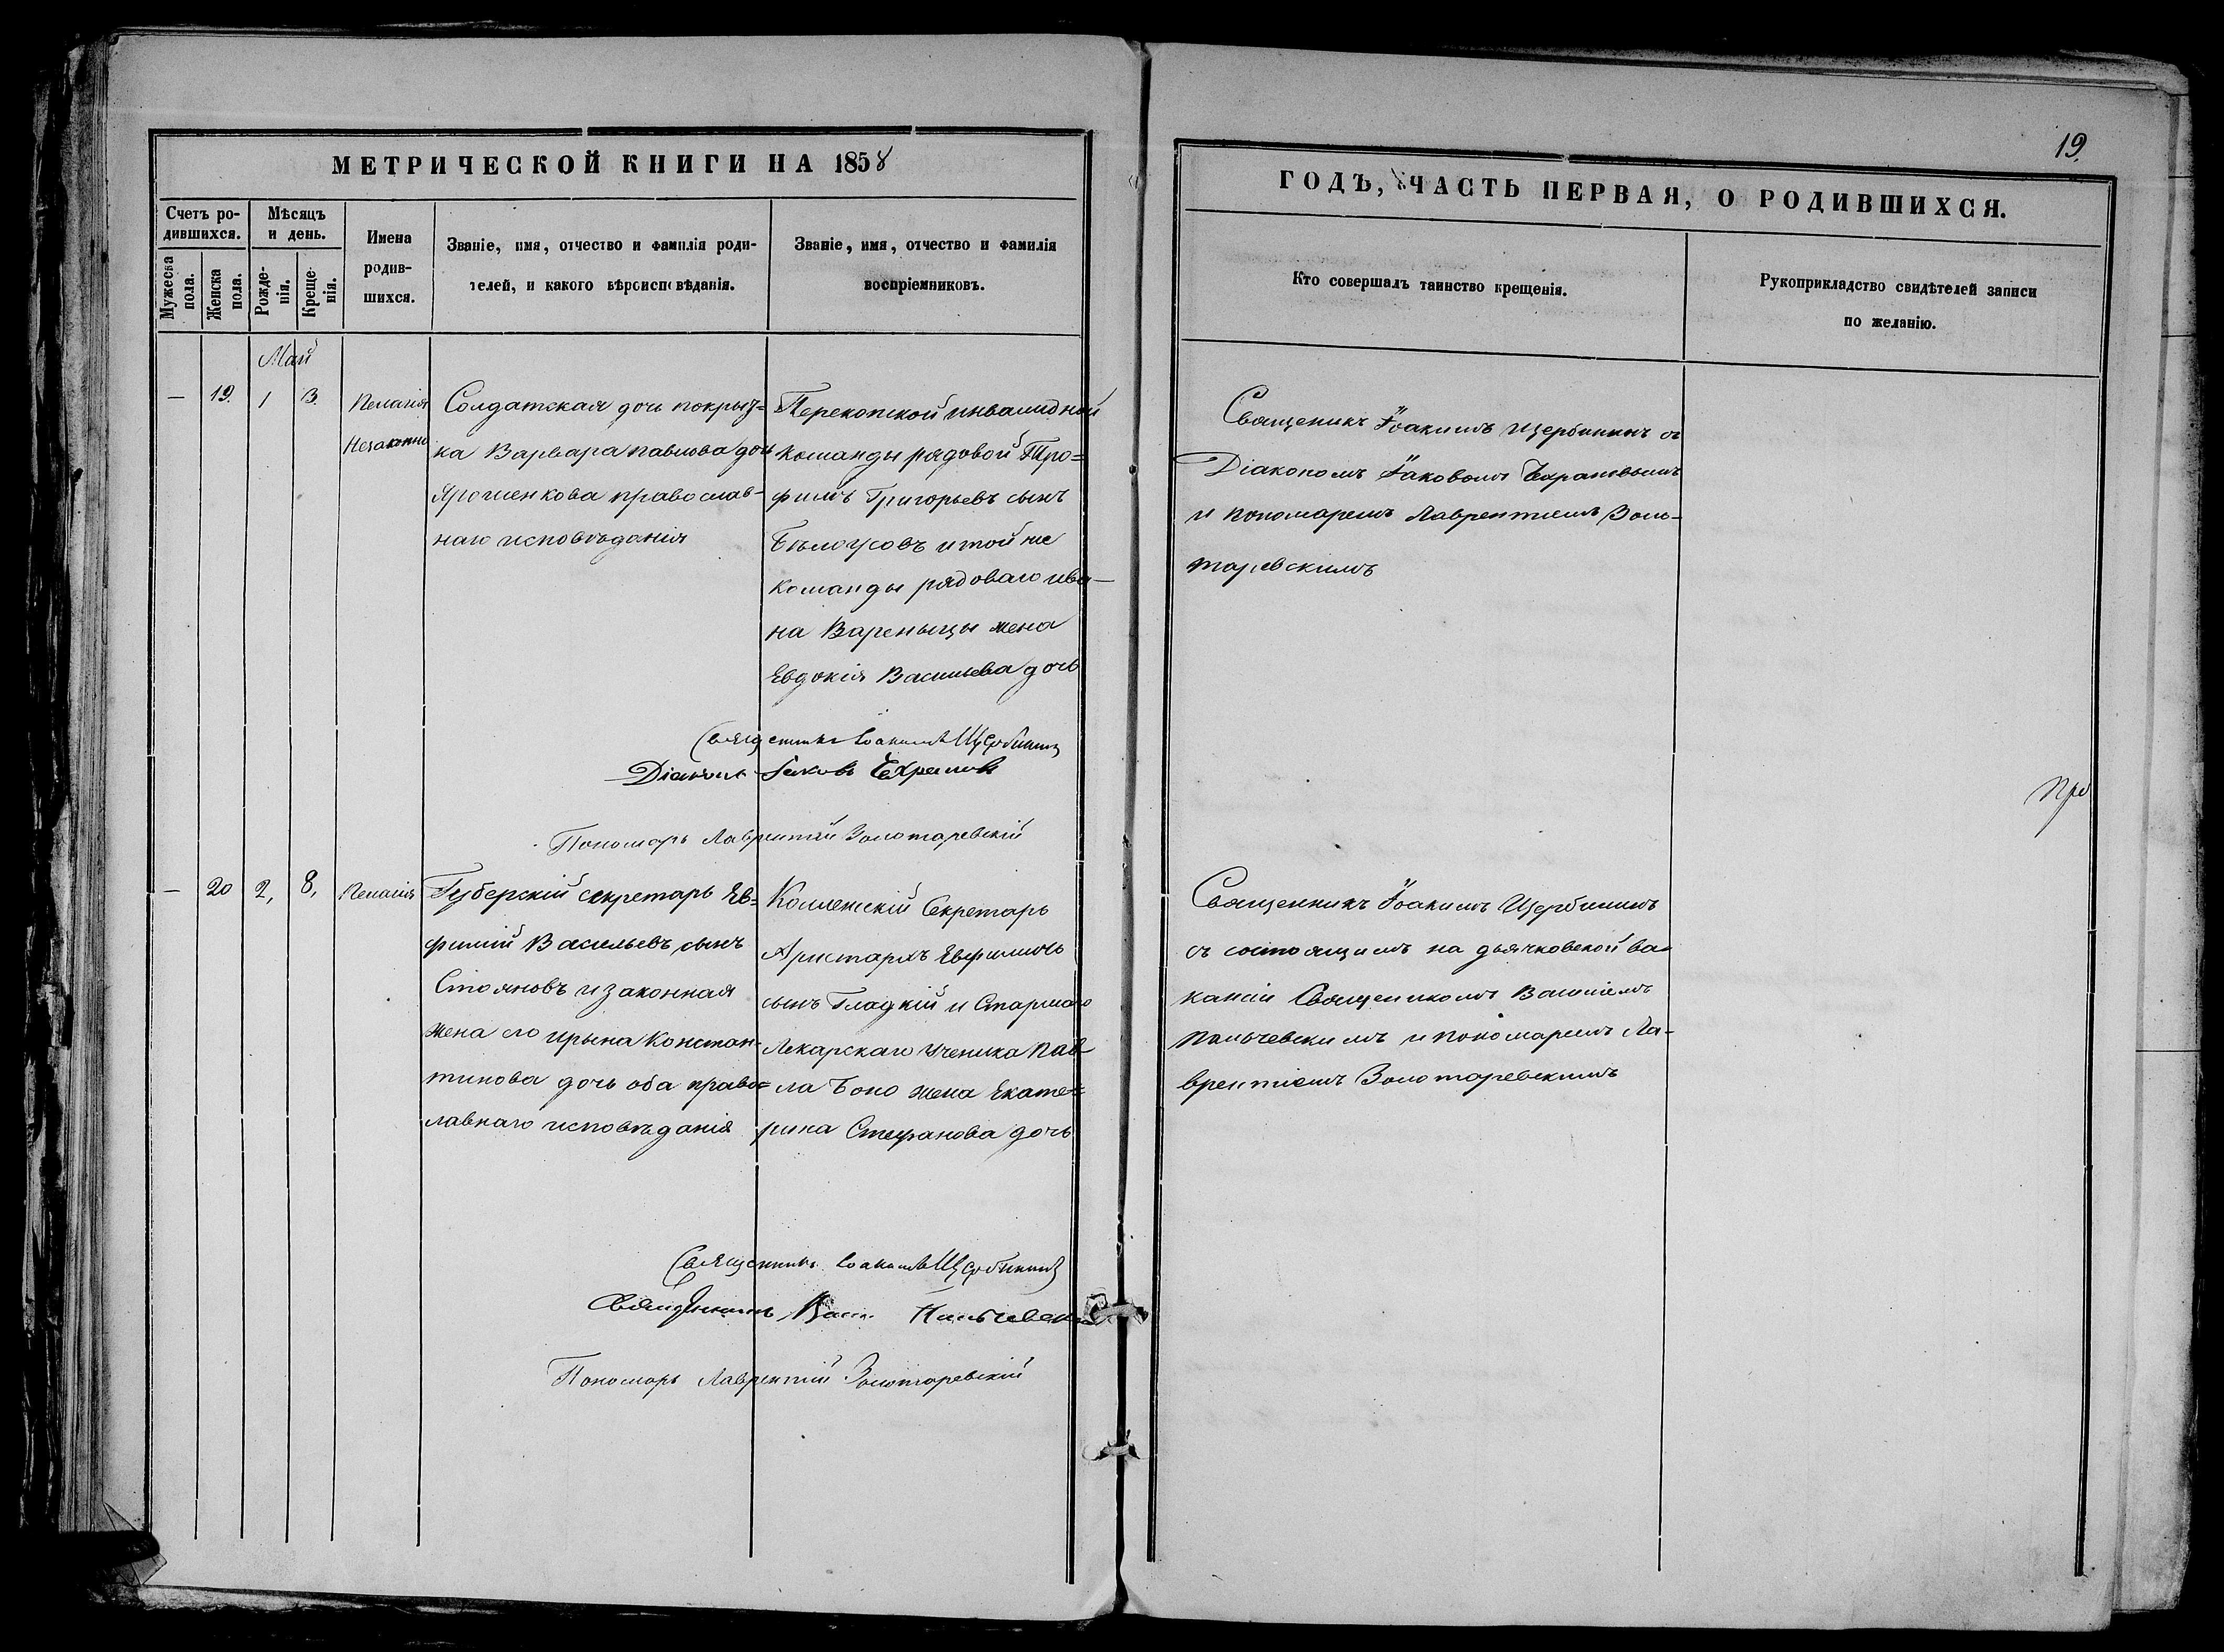 МЕТРИЧЕСКОЙ КНИГИ НА 1858
Счетъ ро-
дившихся.
Мѣсяцъ
и день.
Мужеска
пола.
Женска
пола.
Рожде-
нія.
Креще-
нія.
Имена
родив-
шихся.
Званіе, имя, отчество и фамилія роди-
телей, и какого вѣроисповѣданія.
Званіе, имя, отчество и фамилія
воспріемниковъ.
Май
— 19. 1 3.
Пелагія
Незаконно
Солдатская дочь покрыт-
ка Варвара павлова дочь
Ярошенкова православ-
наго исповѣданія
Перекопской инвалидной
команды рядовой Тро=
фимъ Григорьевъ сынъ
Бѣлоусовъ и той же
команды рядоваго ива-
на Вареныцы жена
Евдокія Васильева дочь
Священникъ Іоакимъ Щербининъ
Діаконъ Іаковъ Ехрамовъ
Пономарь Лаврентій Золотаревскій
— 20 2, 8,
Пелагія
Губерскій секретарь Ев=
фимій Васильевъ сынъ
Стояновъ и законная
жена его ирына Констан-
тинова дочь оба правос=
лавнаго исповѣданія
Коллежскій Секретарь
Аристархъ Евфимовъ
сынъ Гладкій и Старшаго
Лекарскаго Ученика Пав-
ла жена Екате=
рина Стефанова дочь
Священникъ Іоакимъ Щербининъ
Священникъ Васи.
Пономарь Лаврентій Золотаревскій
19.
ГОДЪ, ЧАСТЬ ПЕРВАЯ, О РОДИВШИХСЯ.
Кто совершалъ таинство крещенія.
Рукоприкладство свидѣтелей записи
по желанію.
Священикъ Іоакимъ Щербининъ съ
Діакономъ Іаковомъ Ехрамовымъ
и пономаремъ Лаврентіемъ Золо-
таревскимъ
Про
Священникъ Іоакимъ Щербининъ
съ состоящимъ на дьячковской ва-
кансіи Священикомъ Василіемъ
и пономаремъ Ла-
врентіемъ Золотаревскимъ